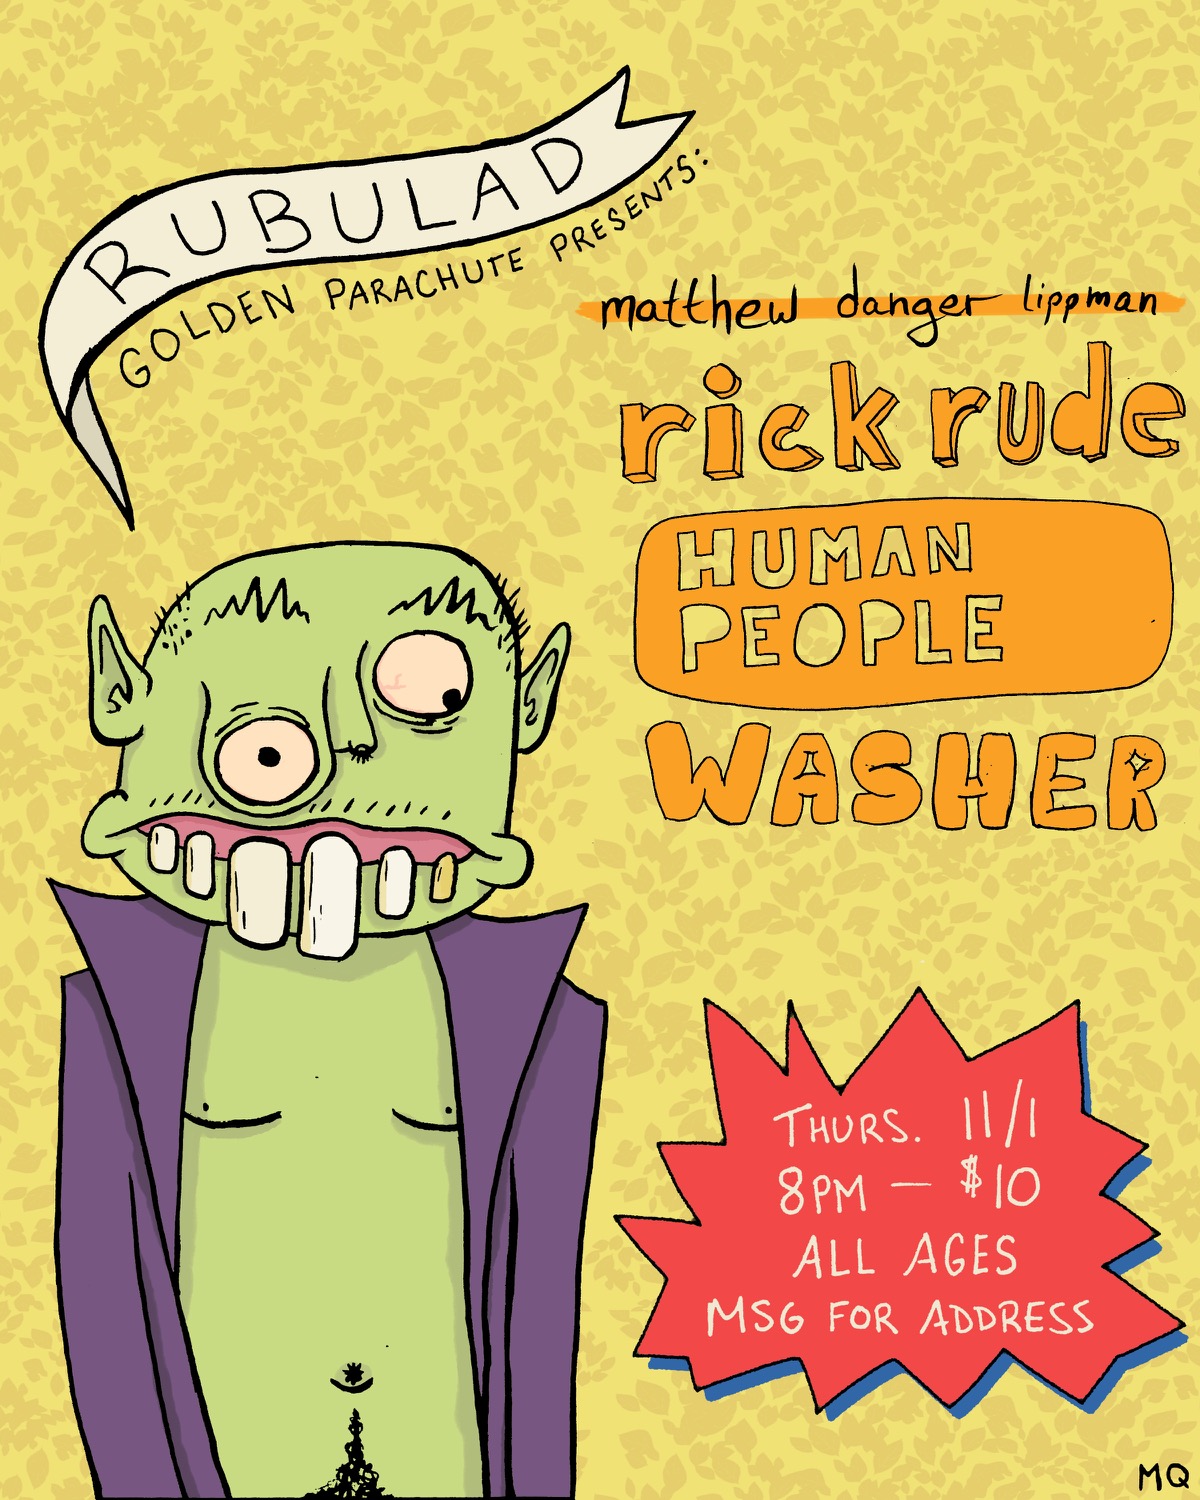 RUBULAD
GOLDEN PARACHUTE PRESENTS:
matthew danger lippman
rick rude
HUMAN
PEOPLE
WASHER
THURS. 11/1
8PM — $10
ALL AGES
MSG FOR ADDRESS
MQ